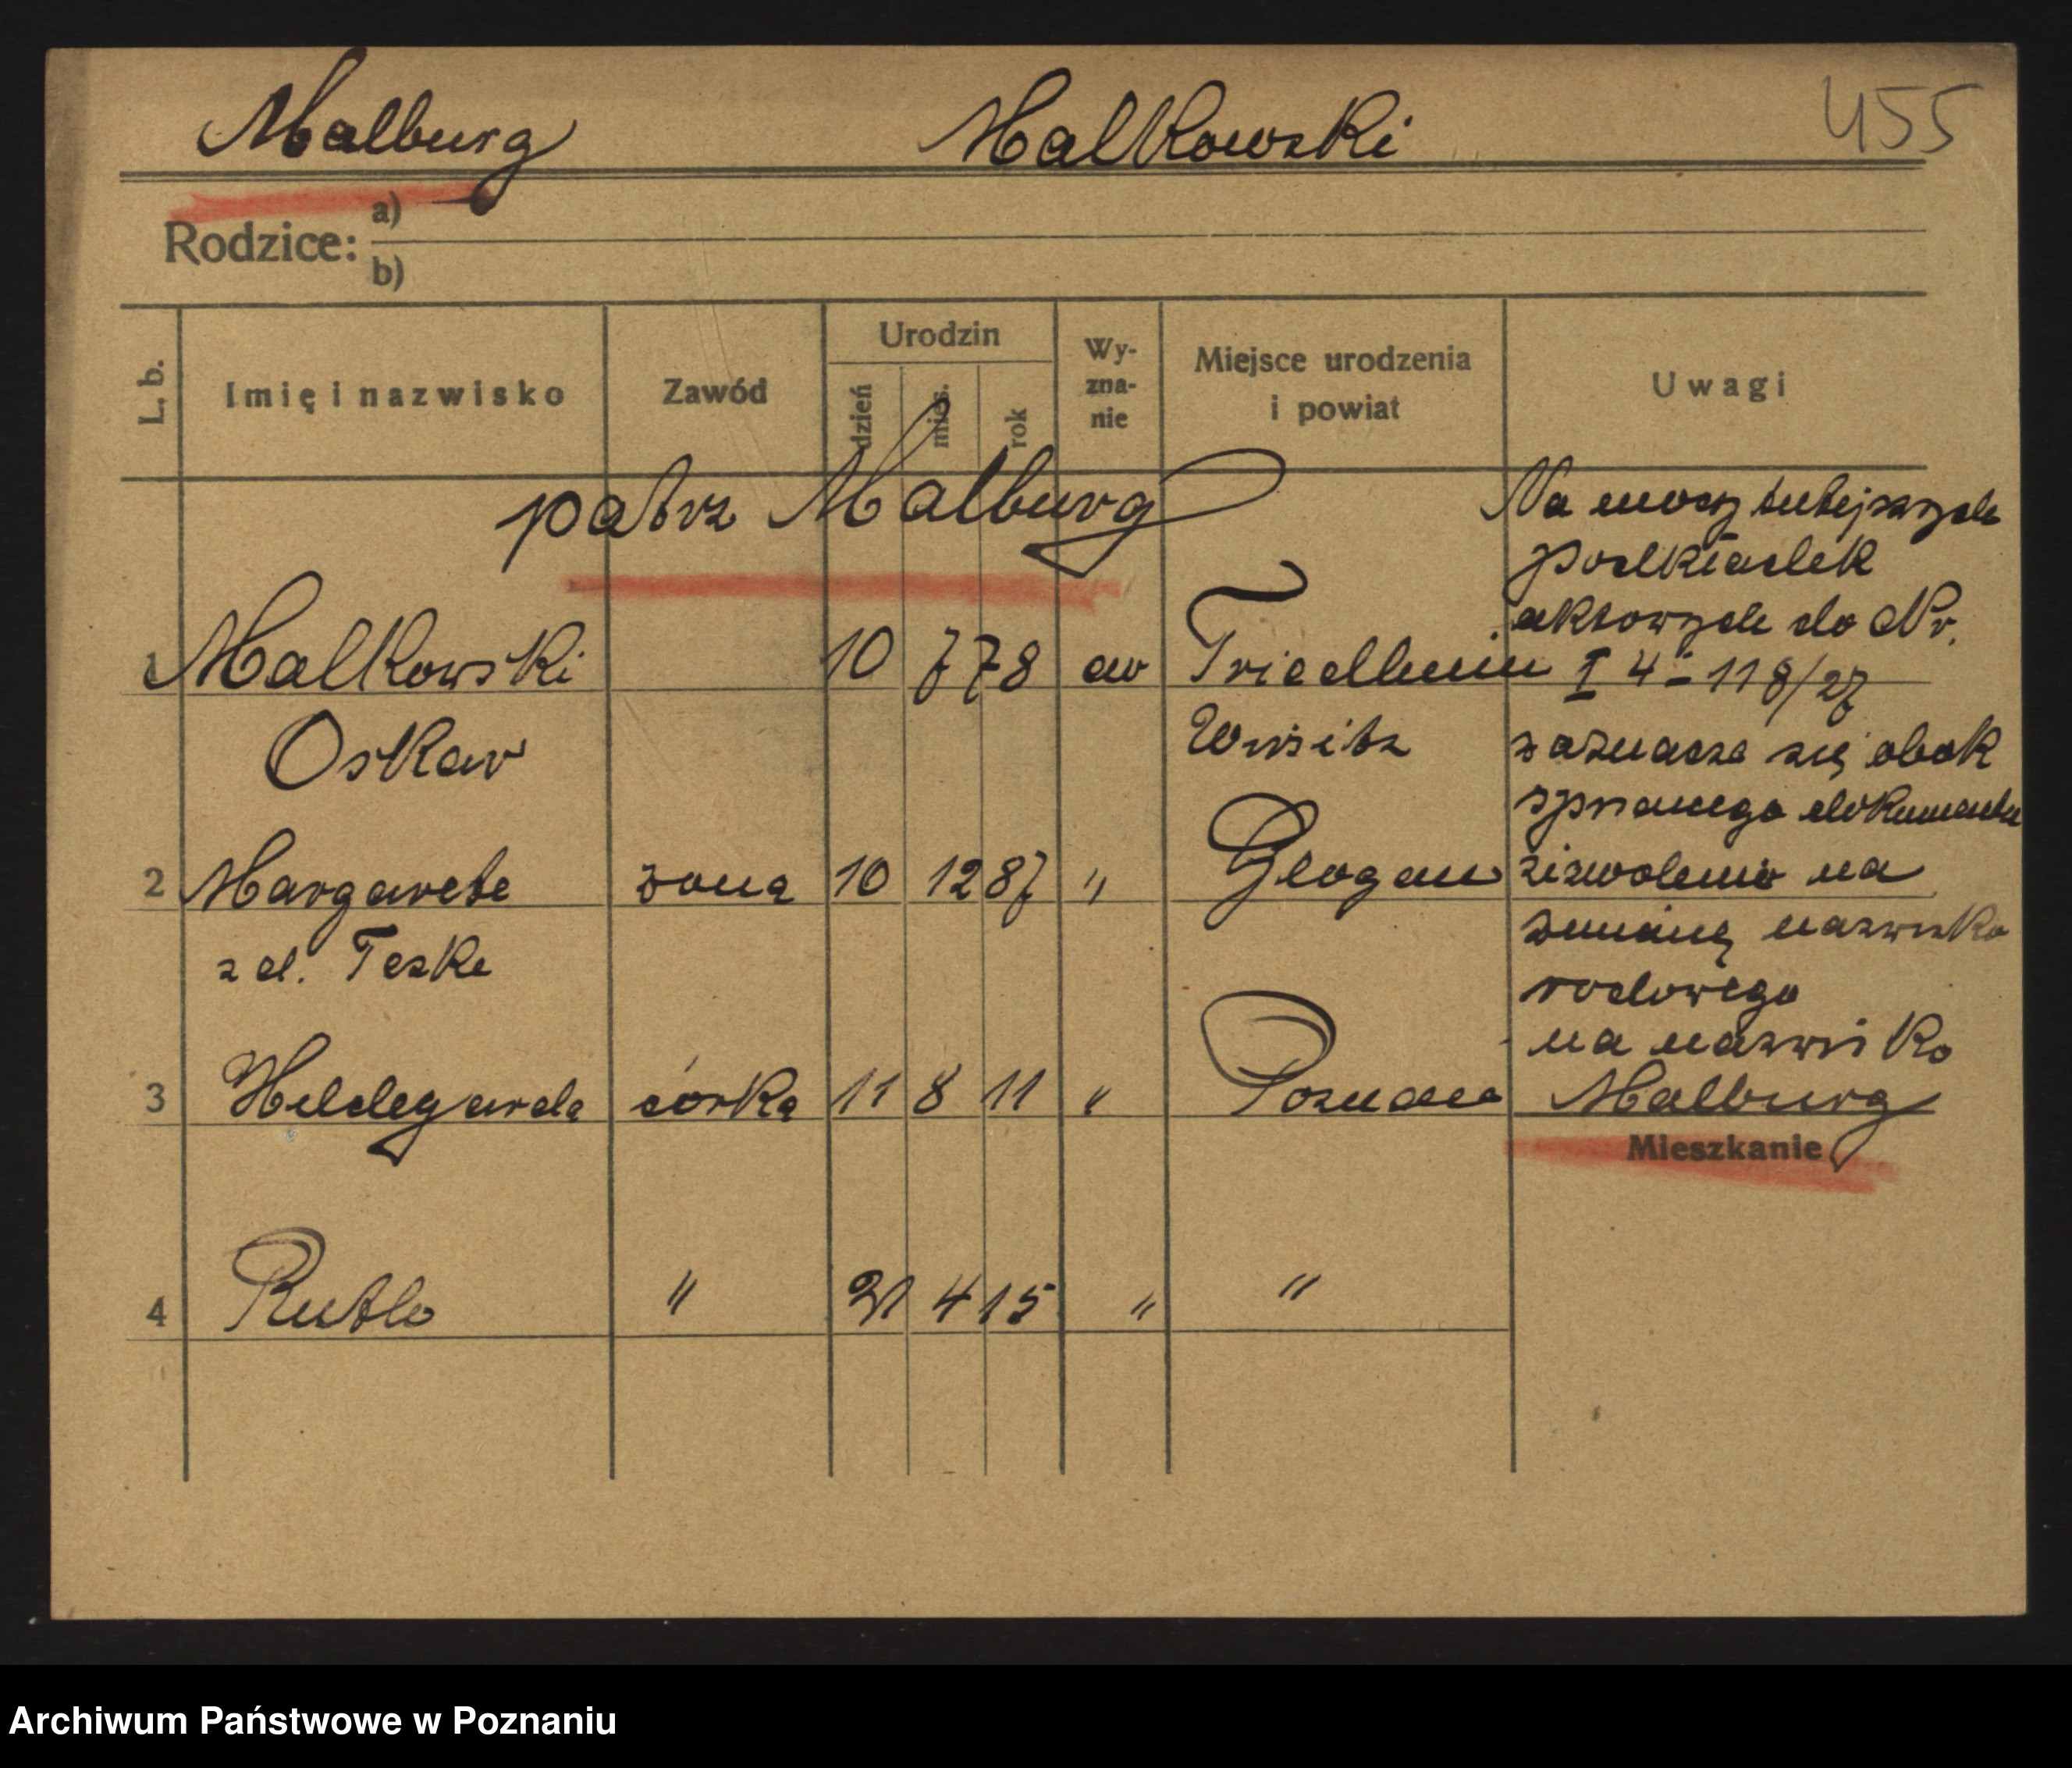 Malburg Malkowski 455
Rodzice: a)
b)
L. b. Imię i nazwisko Zawód Urodzin dzień mies. rok Wy-zna-nie Miejsce urodzenia i powiat Uwagi
patrz Malburg
1 Malkowski 10 7 78 ew
Oskar Wirsitz
2 Margarete żona 10 12 87 " Glogau
z d. Teske
3 Hildegarda córka 11 8 11 " Poznań
4 Ruth " 21 4 15 " "
Na mocy tutejszych
podkładek
aktowych do Nr.
I 4 - 118/27
zaznacza się obok
dokumentu
zezwolenie na
zmianę nazwiska
rodowego
na nazwisko
Malburg
Mieszkanie
Archiwum Państwowe w Poznaniu